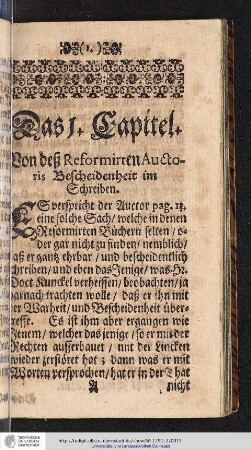 (1.)
Das 1. Capitel.
Von deß Reformirten Aucto-
ris Bescheidenheit im
Schreiben.
ES verspricht der Auctor pag. 13.
eine solche Sach/ welche in denen
Reformirten Büchern selten/ o-
der gar nicht zu finden/ nemblich/
aß er gantz ehrbar/ und bescheidentlich
chreiben/ und eben das Jenige/ was Hr.
Doct Kunckel verheissen/ beobachten/ ja
darnach trachten wolle/ daß er ihn mit
er Warheit/ und Bescheidenheit über-
reffe. Es ist ihm aber ergangen wie
Jenem/ welcher das jenige/ so er mit der
Rechten aufferbauet/ mit der Lincken
wieder zerstöret hat; dann was er mit
Worten versprochen/ hat er in der That
A nicht